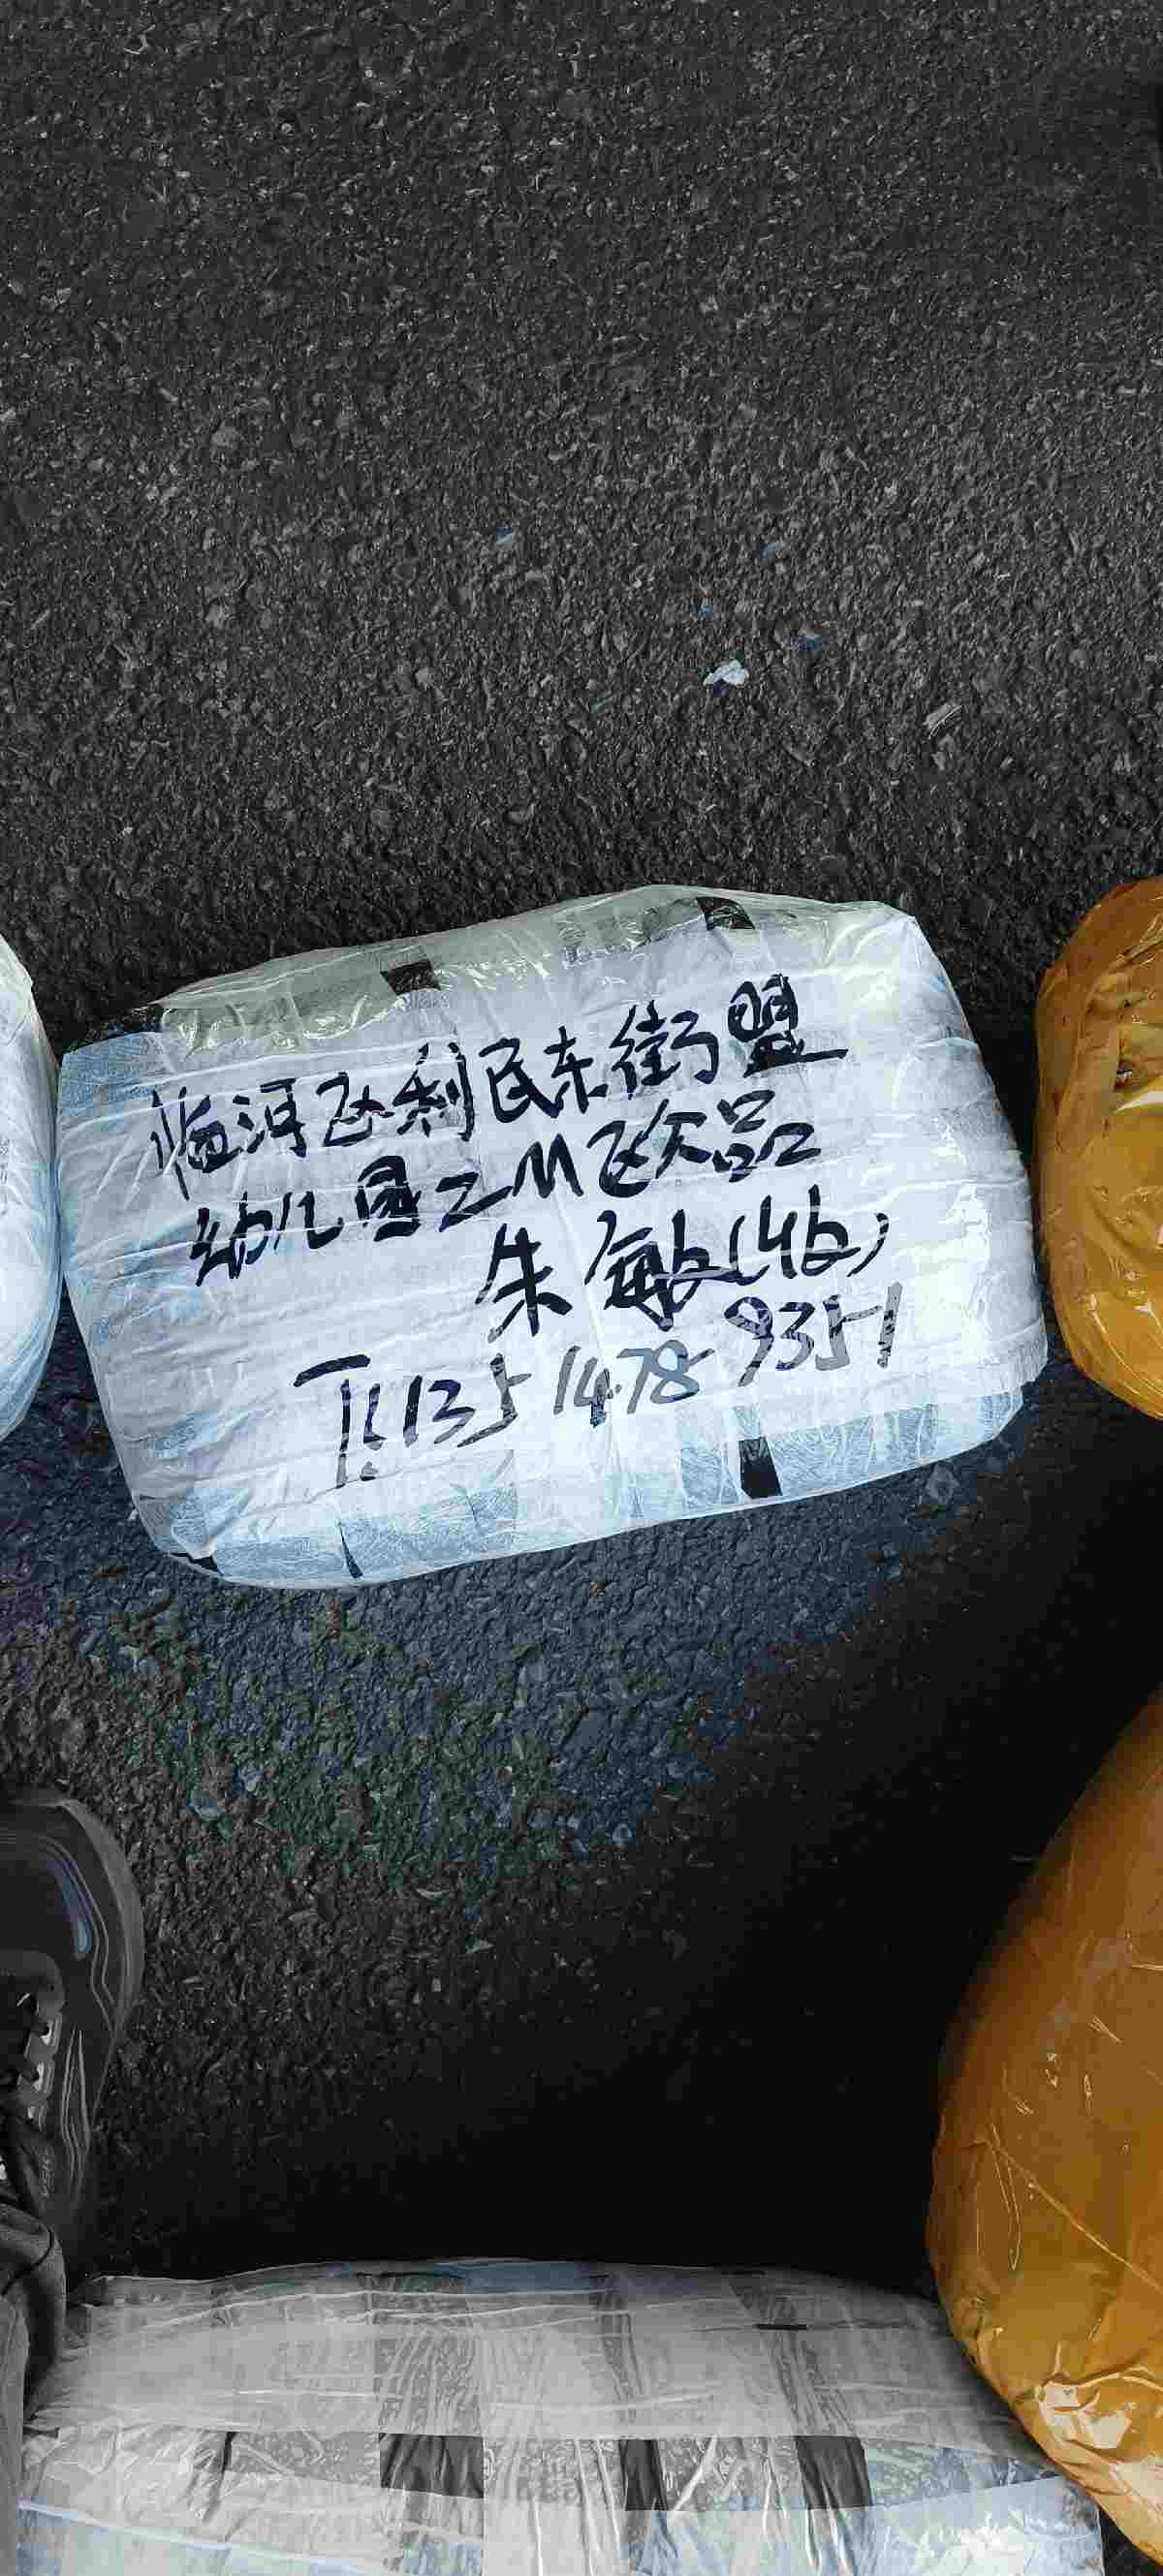 临河区利民东街盟
幼儿园ZM区欠品
朱敏(46)
T:13514789351